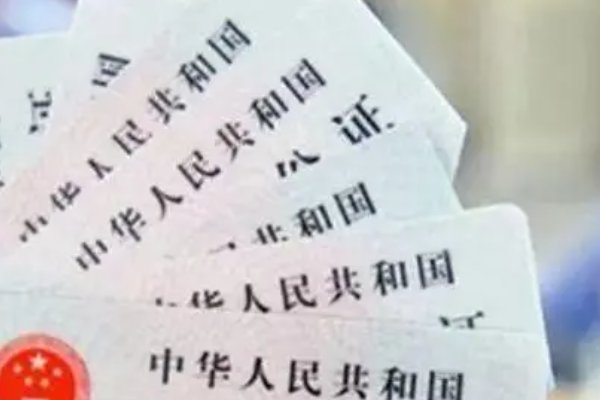 国
证
中华人民共和国
中华人民共和国
证
共和国
华人民共和国
证
中华人民共和国